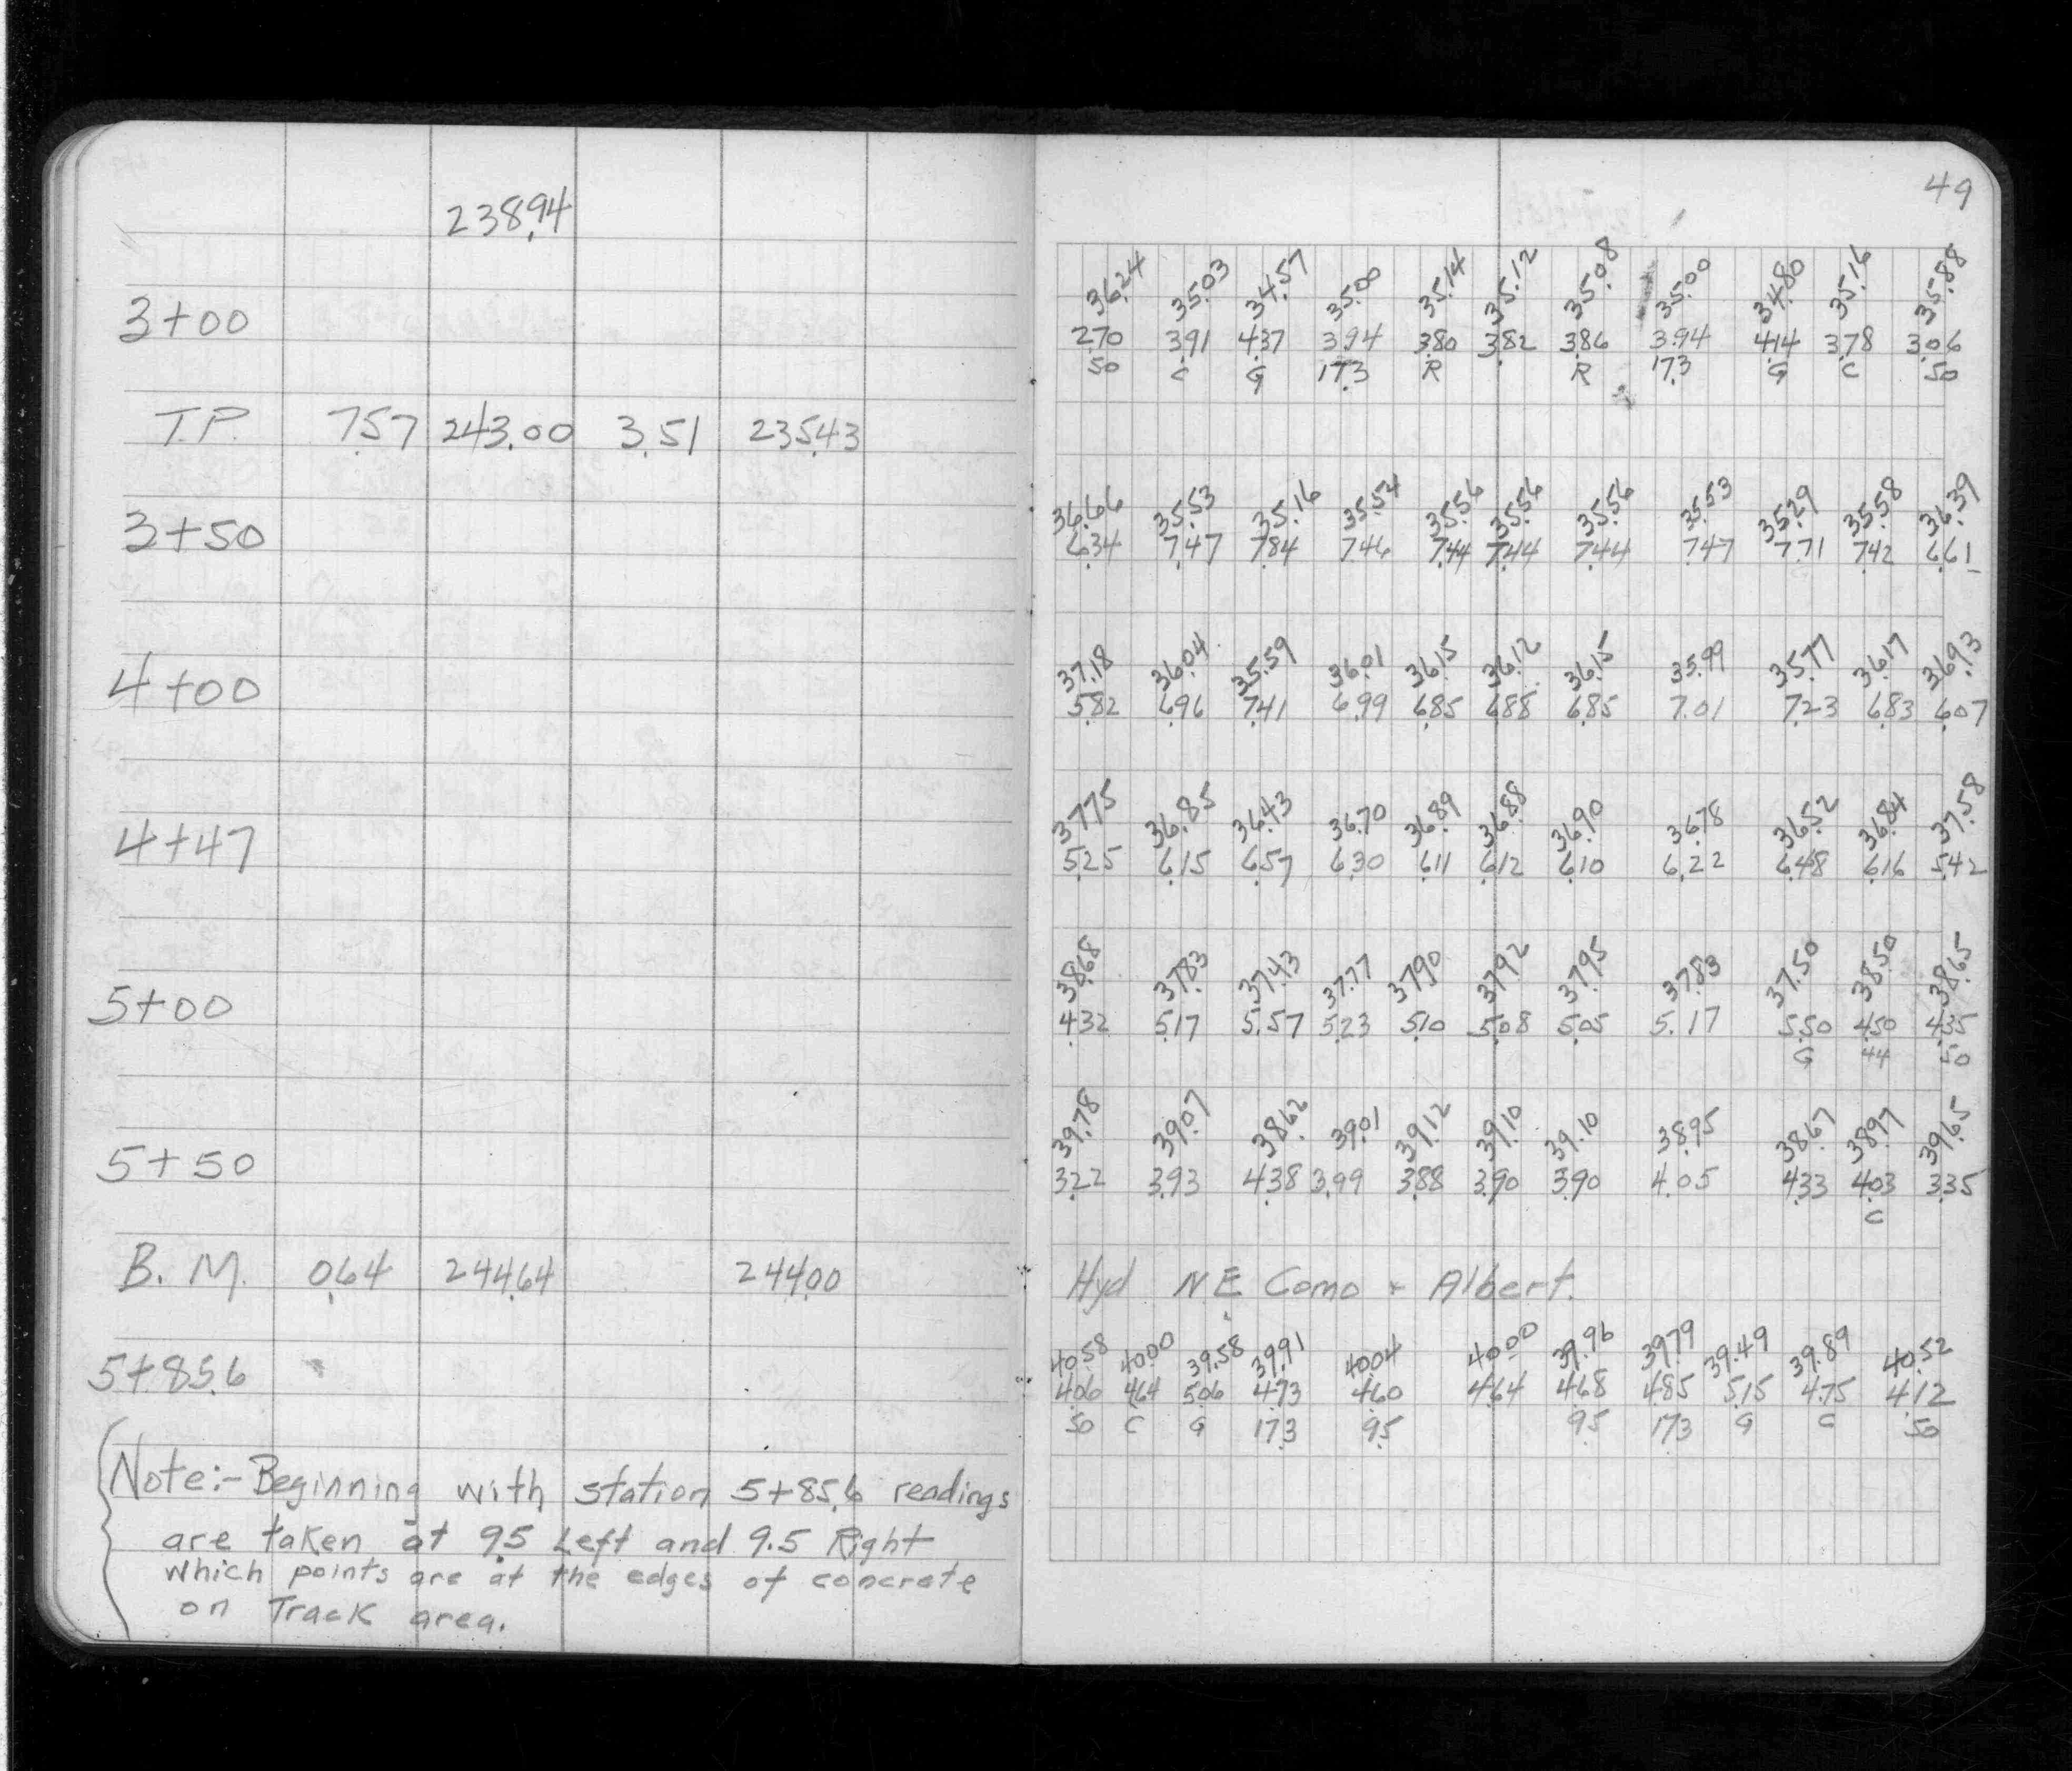 49
238.94
36.24 35.03 34.57 35.00 35.14 35.12 35.08 35.00 34.80 35.16 35.88
3+00
2.70 3.91 4.37 3.94 3.80 3.82 3.86 3.94 4.14 3.78 3.06
50 C G 17.3 R R 17.3 G C 50
T.P. 7.57 243.00 3.51 235.43
36.66 35.53 35.16 35.54 35.56 35.56 35.56 35.53 35.29 35.58 36.39
3+50
6.34 7.47 7.84 7.46 7.44 7.44 7.44 7.47 7.71 7.42 6.61
37.18 36.04 35.59 36.01 36.15 36.12 36.15 35.99 35.77 36.17 36.93
4+00
5.82 6.96 7.41 6.99 6.85 6.88 6.85 7.01 7.23 6.83 6.07
37.75 36.85 36.43 36.70 36.89 36.88 36.90 36.78 36.52 36.84 37.58
4+47
5.25 6.15 6.57 6.30 6.11 6.12 6.10 6.22 6.48 6.16 5.42
38.68 37.83 37.43 37.77 37.90 37.92 37.95 37.83 37.50 38.50 38.65
5+00
4.32 5.17 5.57 5.23 5.10 5.08 5.05 5.17 5.50 4.50 4.35
G 44 50
39.78 39.07 38.62 39.01 39.12 39.10 39.10 38.95 38.67 38.97 39.65
5+50
3.22 3.93 4.38 3.99 3.88 3.90 3.90 4.05 4.33 4.03 3.35
C
B. M. 0.64 244.64 244.00
Hyd NE Como + Albert.
40.58 40.00 39.58 39.91 40.04 40.00 39.96 39.79 39.49 39.89 40.52
5+85.6
4.06 4.64 5.06 4.73 4.60 4.64 4.68 4.85 5.15 4.75 4.12
50 C G 17.3 9.5 9.5 17.3 G C 50
Note:- Beginning with station 5+85.6 readings
are taken at 9.5 Left and 9.5 Right
which points are at the edges of concrete
on Track area.